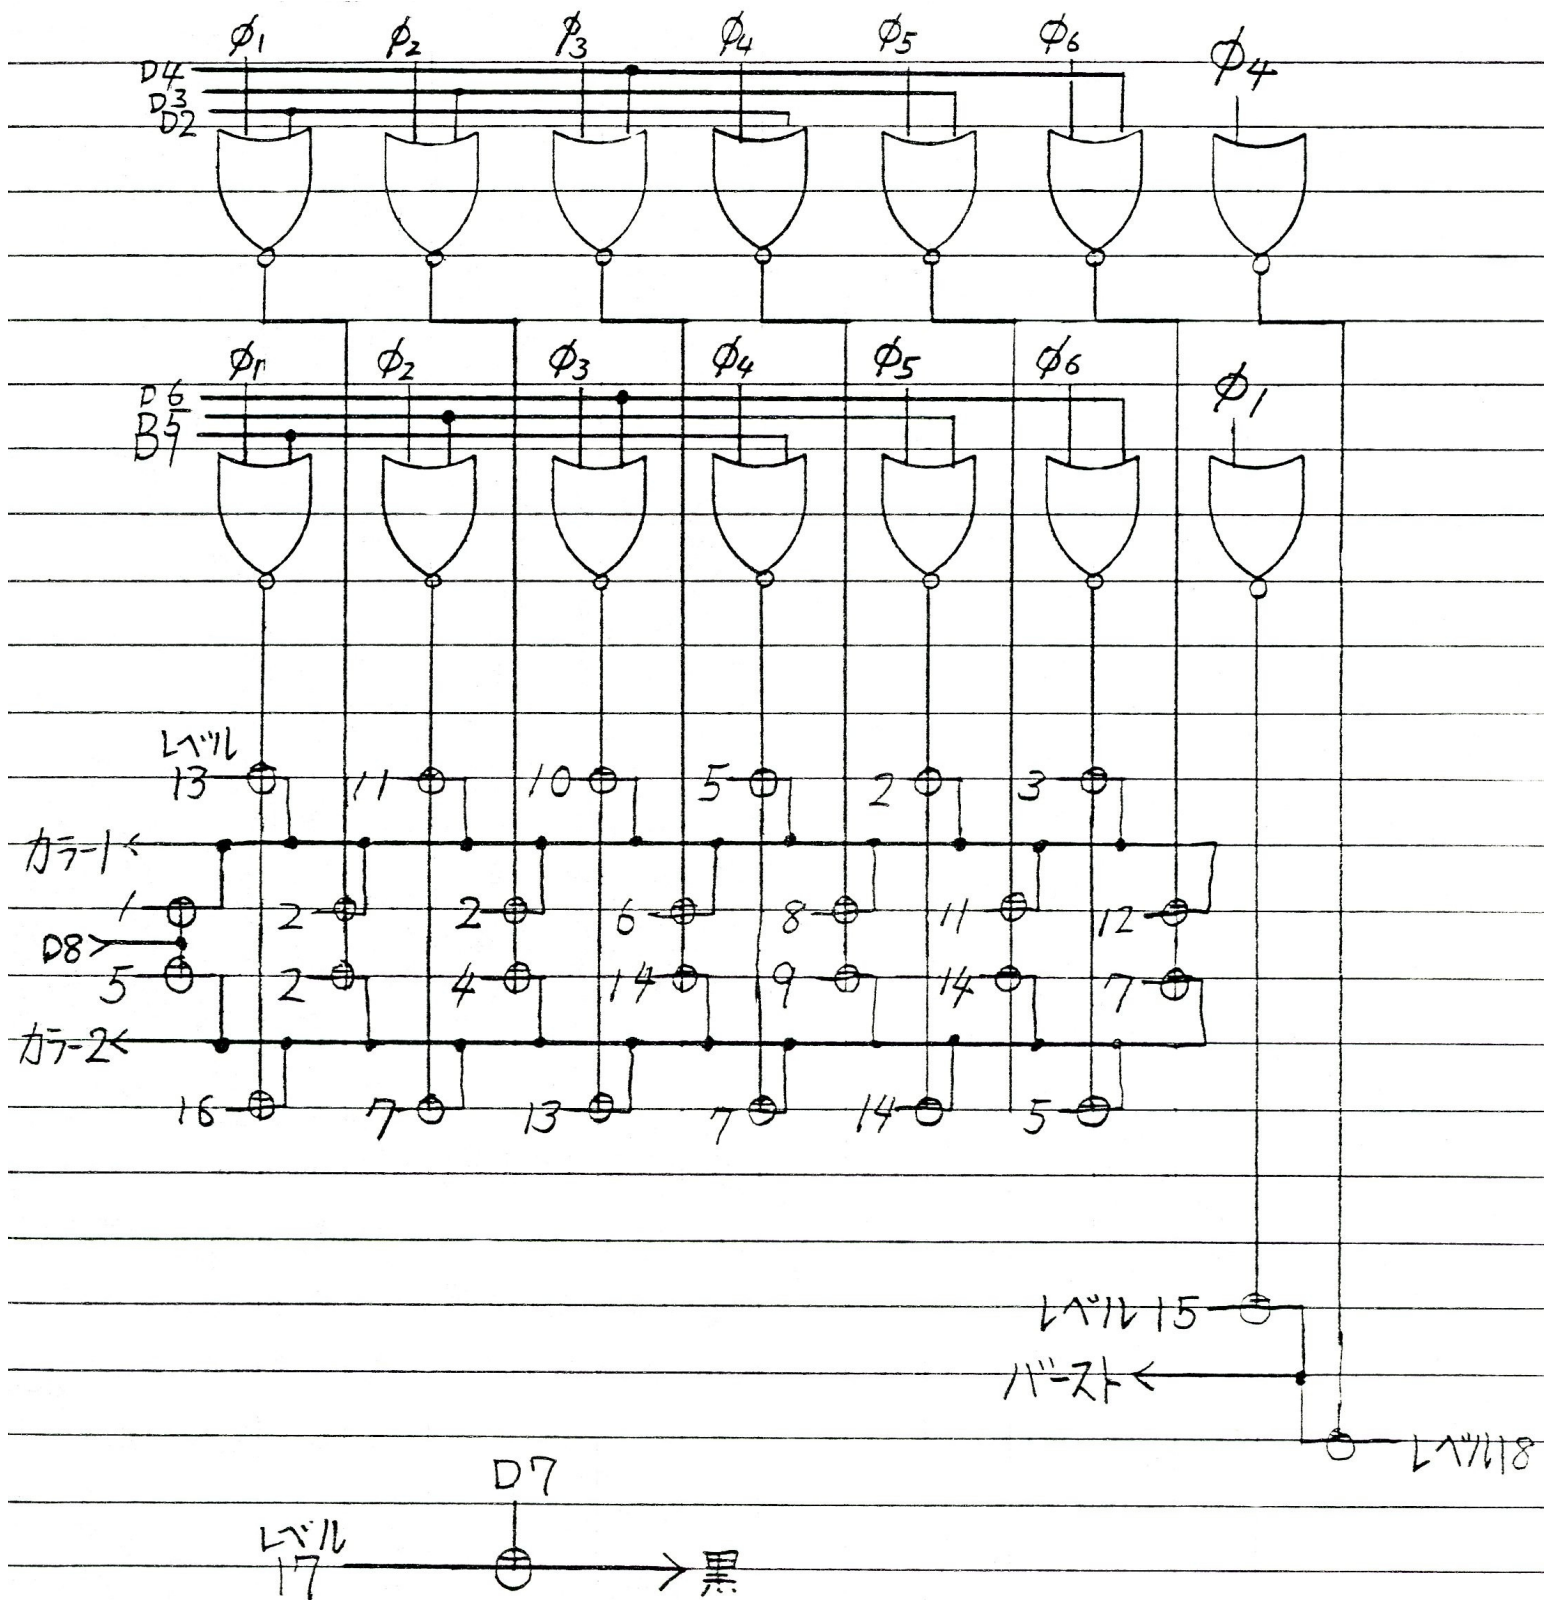 φ1 φ2 φ3 φ4 φ5 φ6 φ4
D4
D3
D2
φ1 φ2 φ3 φ4 φ5 φ6 φ1
D6
D5
レベル
13 11 10 5 2 3
カラー1
1 2 2 6 8 11 12
D8
5 2 4 14 9 14 7
カラー2
16 7 13 7 14 5
レベル15
バースト
レベル18
D7
レベル
17 黒